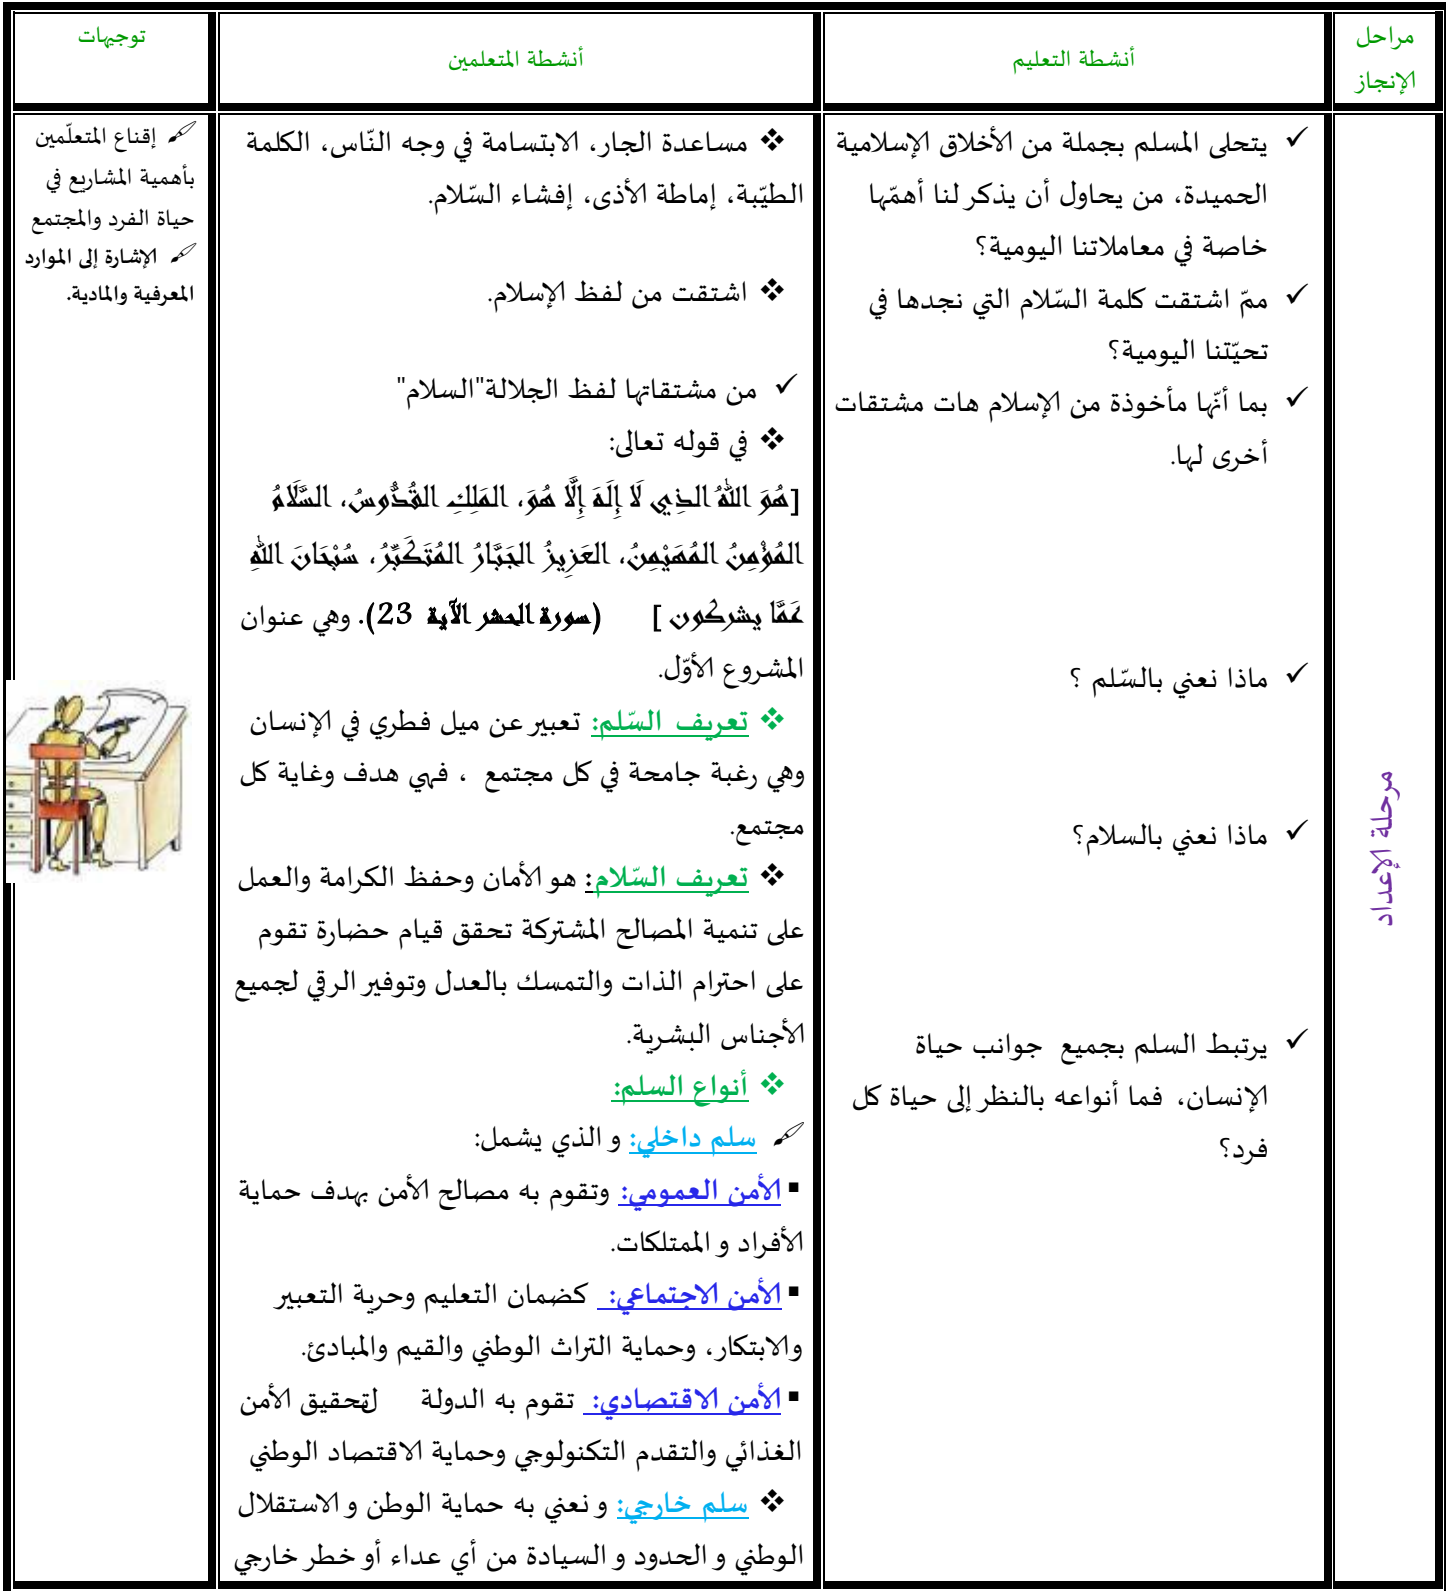 مراحل
الإنجاز
أنشطة التعليم
أنشطة المتعلمين
توجيهات
مرحلة الإعداد
✓ يتحلى المسلم بجملة من الأخلاق الإسلامية
الحميدة، من يحاول أن يذكر لنا أهمّها
خاصة في معاملاتنا اليومية؟
✓ ممّ اشتقت كلمة السّلام التي نجدها في
تحيّتنا اليومية؟
✓ بما أنّها مأخوذة من الإسلام هات مشتقات
أخرى لها.
✓ ماذا نعني بالسّلم ؟
✓ ماذا نعني بالسلام؟
✓ يرتبط السلم بجميع جوانب حياة
الإنسان، فما أنواعه بالنظر إلى حياة كل
فرد؟
❖ مساعدة الجار، الابتسامة في وجه النّاس، الكلمة
الطيّبة، إماطة الأذى، إفشاء السّلام.
❖ اشتقت من لفظ الإسلام.
✓ من مشتقاتها لفظ الجلالة"السلام"
❖ في قوله تعالى:
[هُوَ اللهُ الذِي لَا إِلَهَ إِلَّا هُوَ، المَلِكِ القُدُّوسُ، السَّلَامُ
المُؤْمِنُ المُهَيْمِنُ، العَزِيزُ الجَبَّارُ المُتَكَبِّرُ، سُبْحَانَ اللهِ
عَمَّا يشركون ] (سورة الحشر الآية 23). وهي عنوان
المشروع الأوّل.
❖ تعريف السّلم: تعبير عن ميل فطري في الإنسان
وهي رغبة جامحة في كل مجتمع ، فهي هدف وغاية كل
مجتمع.
❖ تعريف السّلام: هو الأمان وحفظ الكرامة والعمل
على تنمية المصالح المشتركة تحقق قيام حضارة تقوم
على احترام الذات والتمسك بالعدل وتوفير الرقي لجميع
الأجناس البشرية.
❖ أنواع السلم:
سلم داخلي: و الذي يشمل:
▪ الأمن العمومي: وتقوم به مصالح الأمن بهدف حماية
الأفراد و الممتلكات.
▪ الأمن الاجتماعي: كضمان التعليم وحرية التعبير
والابتكار، وحماية التراث الوطني والقيم والمبادئ.
▪ الأمن الاقتصادي: تقوم به الدولة لتحقيق الأمن
الغذائي والتقدم التكنولوجي وحماية الاقتصاد الوطني
❖ سلم خارجي: و نعني به حماية الوطن و الاستقلال
الوطني و الحدود و السيادة من أي عداء أو خطر خارجي
إقناع المتعلّمين
بأهمية المشاريع في
حياة الفرد والمجتمع
الإشارة إلى الموارد
المعرفية والمادية.